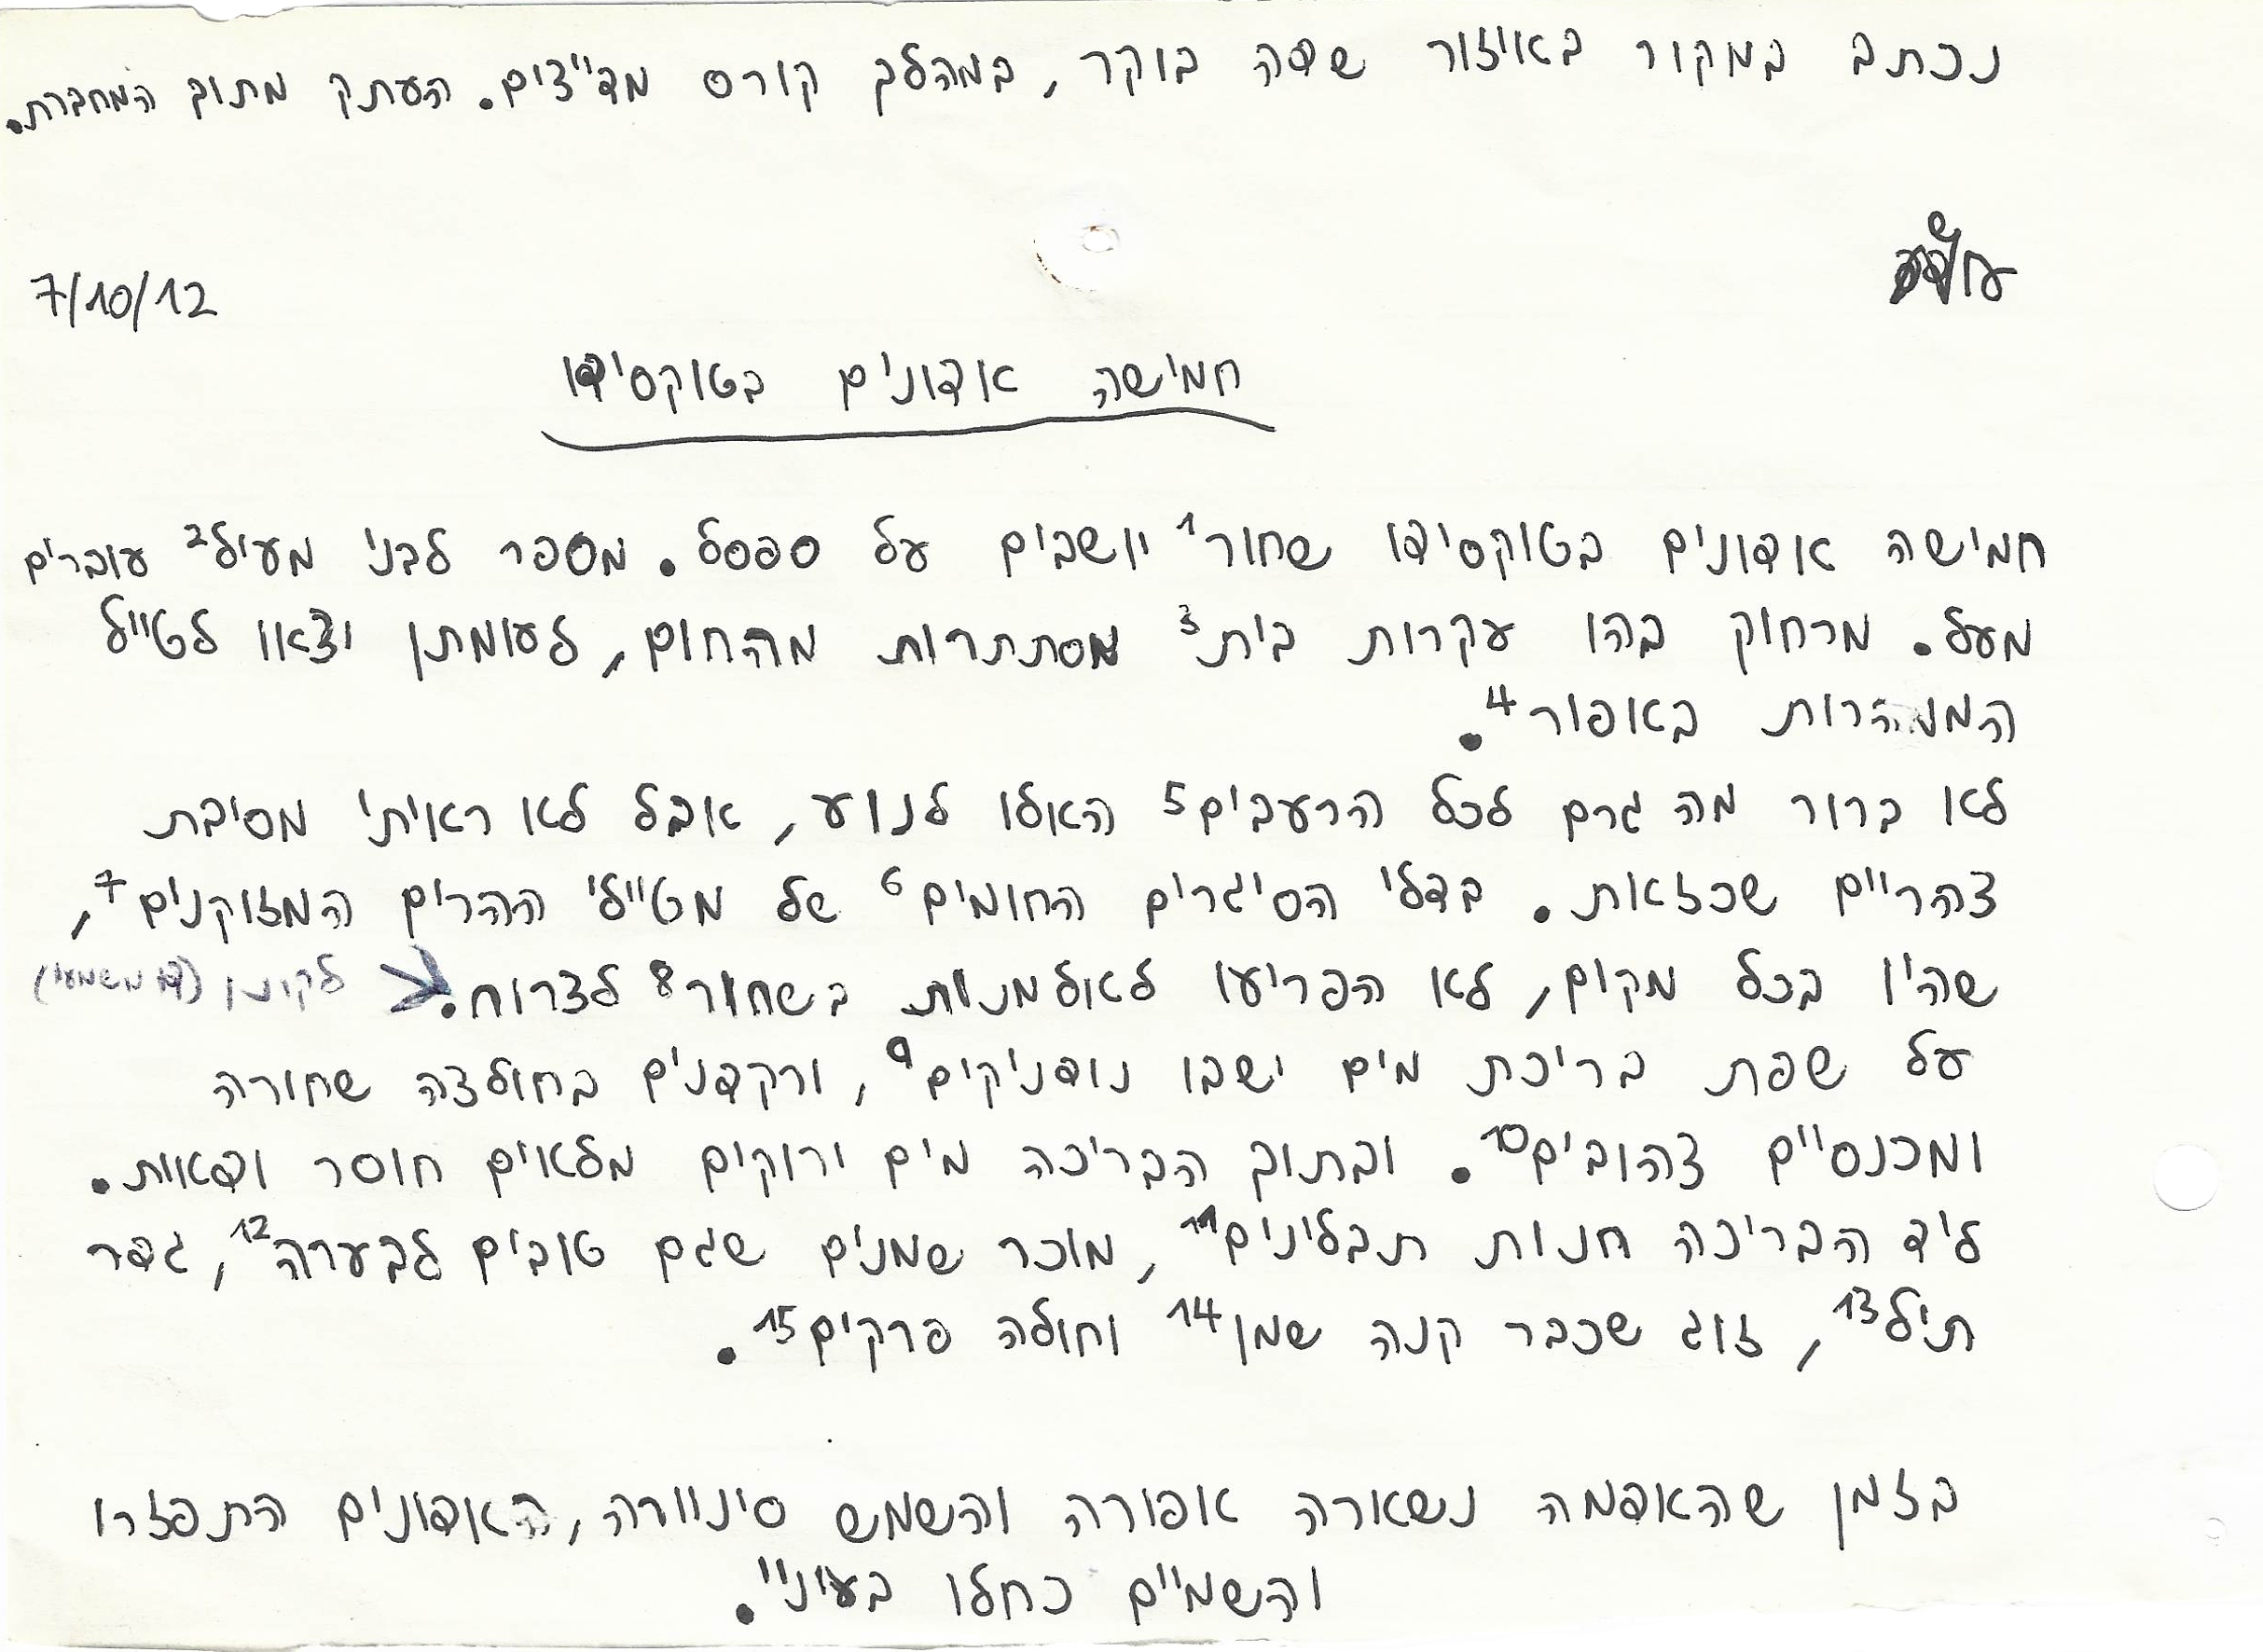 נכתב במקור באיזור שדה בוקר, במהלך קורס מד"צים. העתק מתוך המחברת.
7/10/12
חמישה אדונים בטוקסידו
חמישה אדונים בטוקסידו שחור¹ יושבים על ספסל. מספר לבני מעיל² עוברים
מעל. מרחוק בהו עקרות בית³ מסתתרות מהחום, לעומתן יצאו לטייל
המנהרות באפור⁴.
לא ברור מה גרם לכל הרעבים⁵ האלו לנוע, אבל לא ראיתי מסיבת
צהריים שכזאת. בדלי הסיגרים החומים⁶ של מטיילי ההרים המזוקנים⁷,
שהיו בכל מקום, לא הפריעו לאלמנות בשחור⁸ לצרוח. לקינון (דו משמעי)
על שפת בריכת מים ישבו נודניקים⁹, ורקדנים בחולצה שחורה
ומכנסיים צהובים¹⁰. ובתוך הבריכה מים ירוקים מלאים חוסר ודאות.
ליד הבריכה חנות תבלינים¹¹, מוכר שמנים שגם טובים לבערה¹², גדר
תיל¹³, זוג שכבר קנה שמן¹⁴ וחולה פרקים¹⁵.
בזמן שהאדמה נשארה אפורה והשמש סינוורה, האדונים התפזרו
והשמיים כחלו בעיניי.